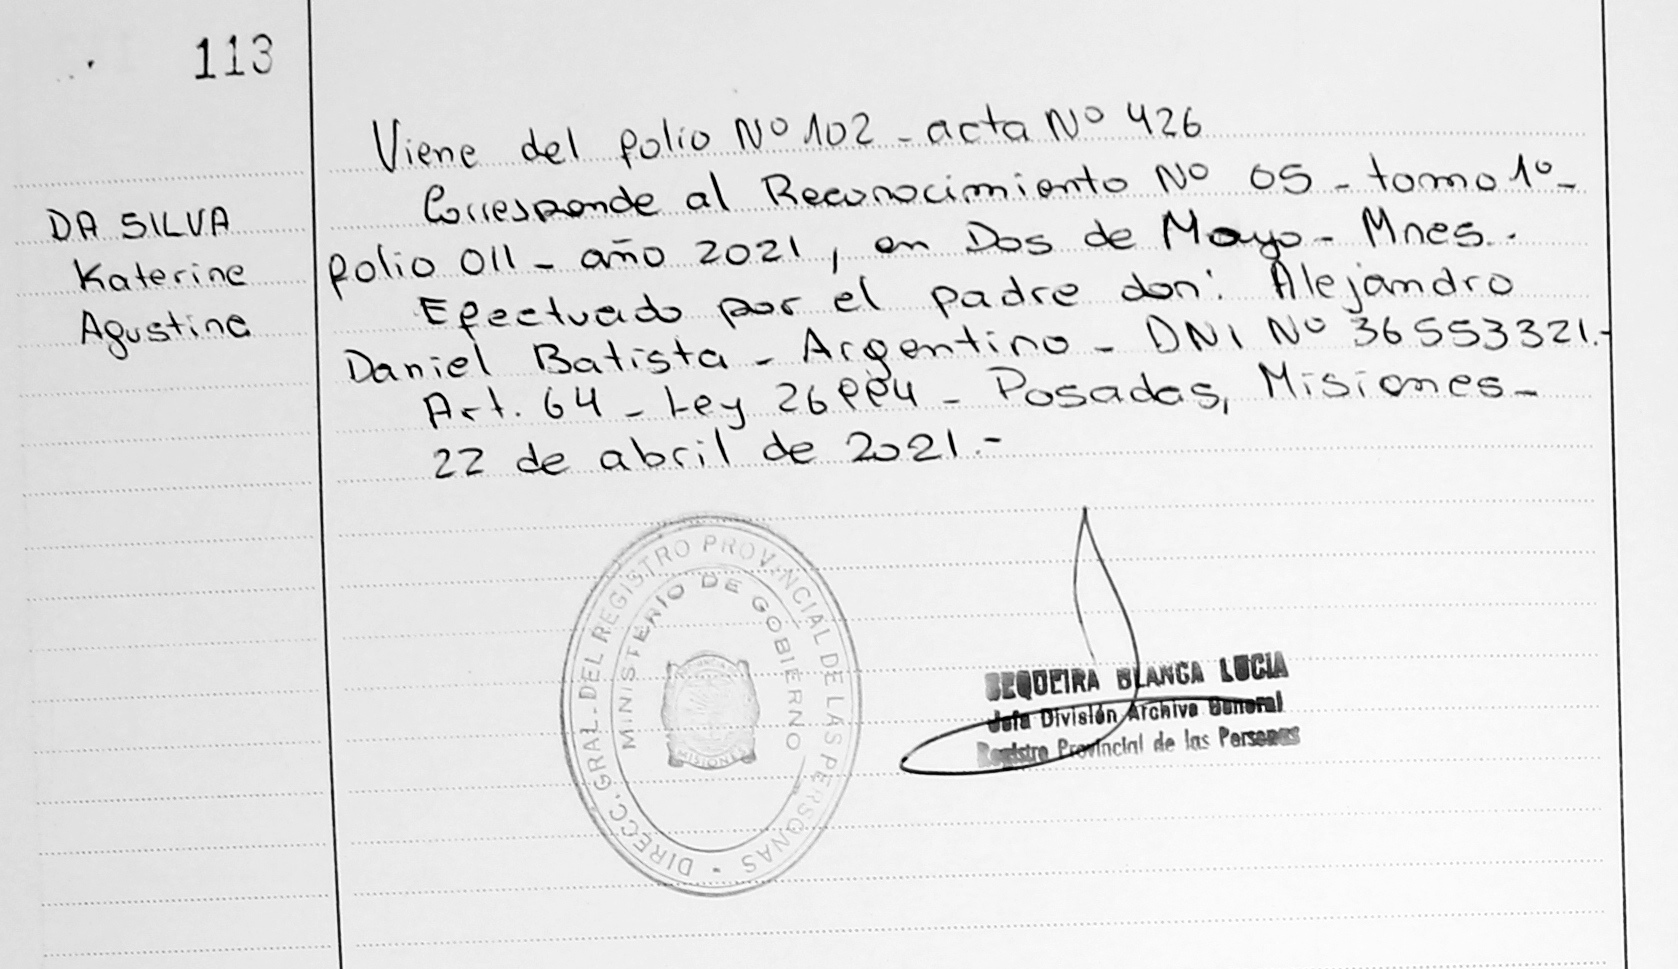 113
Viene del folio Nº 102 - acta Nº 426
Corresponde al Reconocimiento Nº 05 - tomo 1º -
DA SILVA
folio 011 - año 2021, en Dos de Mayo - Mnes.-
Katerine
Efectuado por el padre don: Alejandro
Agustina
Daniel Batista - Argentino - DNI Nº 36553321.-
Art. 64 - Ley 26994 - Posadas, Misiones -
22 de abril de 2021.-
DIRECC. GRAL. DEL REGISTRO PROVINCIAL DE LAS PERSONAS
MINISTERIO DE GOBIERNO
MISIONES
SEQUEIRA BLANCA LUCIA
Jefa División Archivo General
Registro Provincial de las Personas